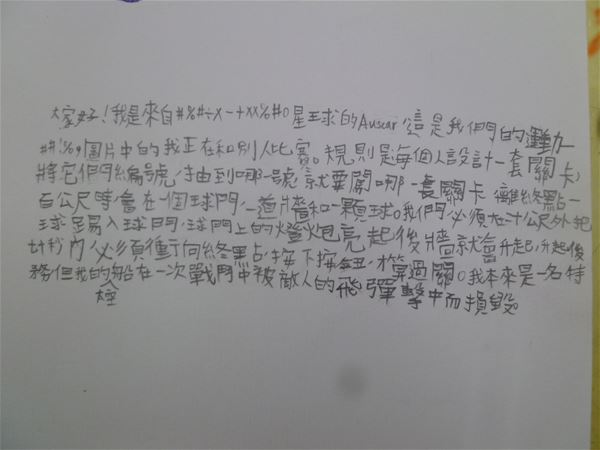 大家好!我是來自#%#÷X-+XX%#0星王球的Auscar這是我們的運動
##!%,圖片中的我正在和別人比賽。規則是每個人設計一套關卡,
將它們編號,抽到哪一號就要闖哪一套關卡離終點一
百公尺時會在一個球門,一道牆和一顆球。我們必須在十公尺外把
球踢入球門,球門上的燈炮亮起後牆就會升起,升起後
秒內必須衝向終點,按下按鈕,才算過關。我本來是一名特
務但我的船在一次戰鬥中被敵人的飛彈擊中而損毀。
太